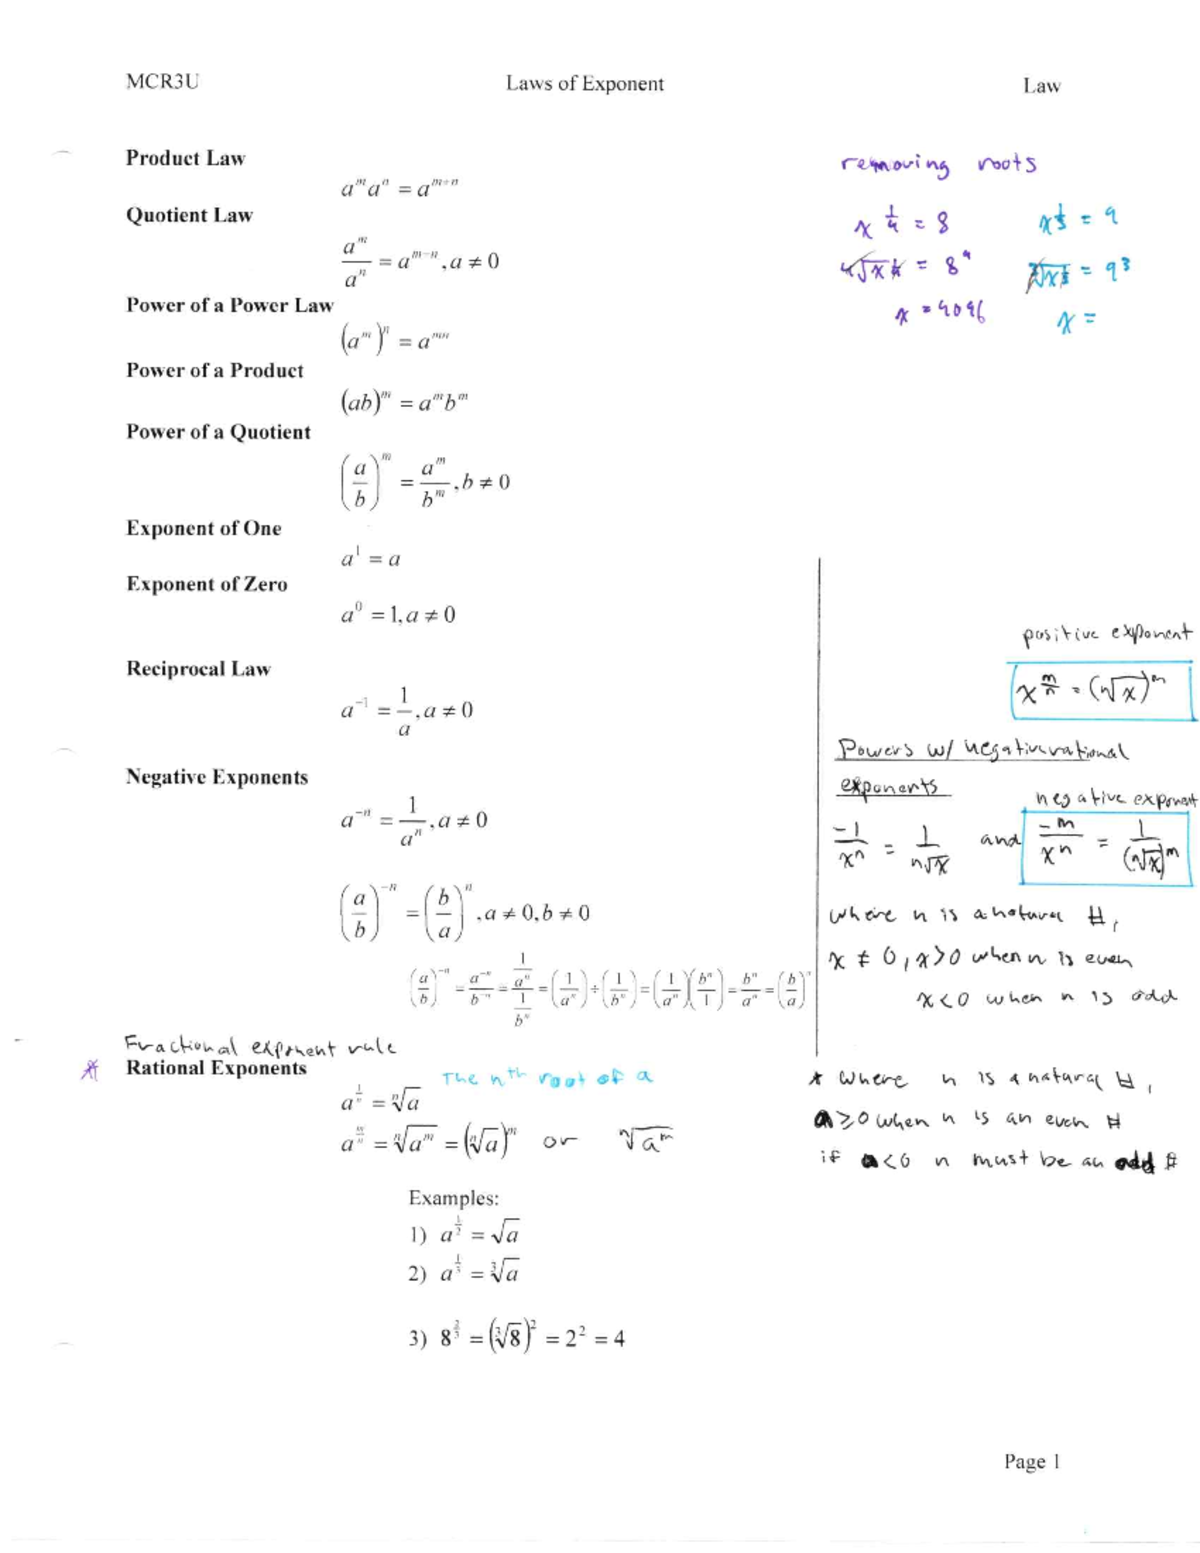 MCR3U Laws of Exponent Law
Product Law
a^m a^n = a^(m+n)
Quotient Law
a^m / a^n = a^(m-n), a ≠ 0
Power of a Power Law
(a^m)^n = a^(mn)
Power of a Product
(ab)^m = a^m b^m
Power of a Quotient
(a/b)^m = a^m / b^m, b ≠ 0
Exponent of One
a^1 = a
Exponent of Zero
a^0 = 1, a ≠ 0
Reciprocal Law
a^(-1) = 1/a, a ≠ 0
Negative Exponents
a^(-n) = 1/a^n, a ≠ 0
(a/b)^(-n) = (b/a)^n, a ≠ 0, b ≠ 0
(a/b)^(-n) = a^(-n)/b^(-n) = (1/a^n)/(1/b^n) = (1/a^n) ÷ (1/b^n) = (1/a^n)(b^n/1) = b^n/a^n = (b/a)^n
Fractional exponent rule
Rational Exponents
The nth root of a
a^(1/n) = ⁿ√a
a^(m/n) = ⁿ√(a^m) = (ⁿ√a)^m or ⁿ√a^m
Examples:
1) a^(1/2) = √a
2) a^(1/3) = ³√a
3) 8^(2/3) = (³√8)^2 = 2^2 = 4
removing roots
x^(1/4) = 8
⁴√x^(1/4) = 8^4
x = 4096
x^(1/3) = 9
³√x^(1/3) = 9^3
x =
positive exponent
x^(m/n) = (ⁿ√x)^m
Powers w/ negative rational
exponents
negative exponent
-1/x^n = 1/ⁿ√x and -m/x^n = 1/(ⁿ√x)^m
where n is a natural #,
x ≠ 0, x>0 when n is even
x<0 when n is odd
* where n is a natural #,
a≥0 when n is an even #
if a<0 n must be an odd #
Page 1